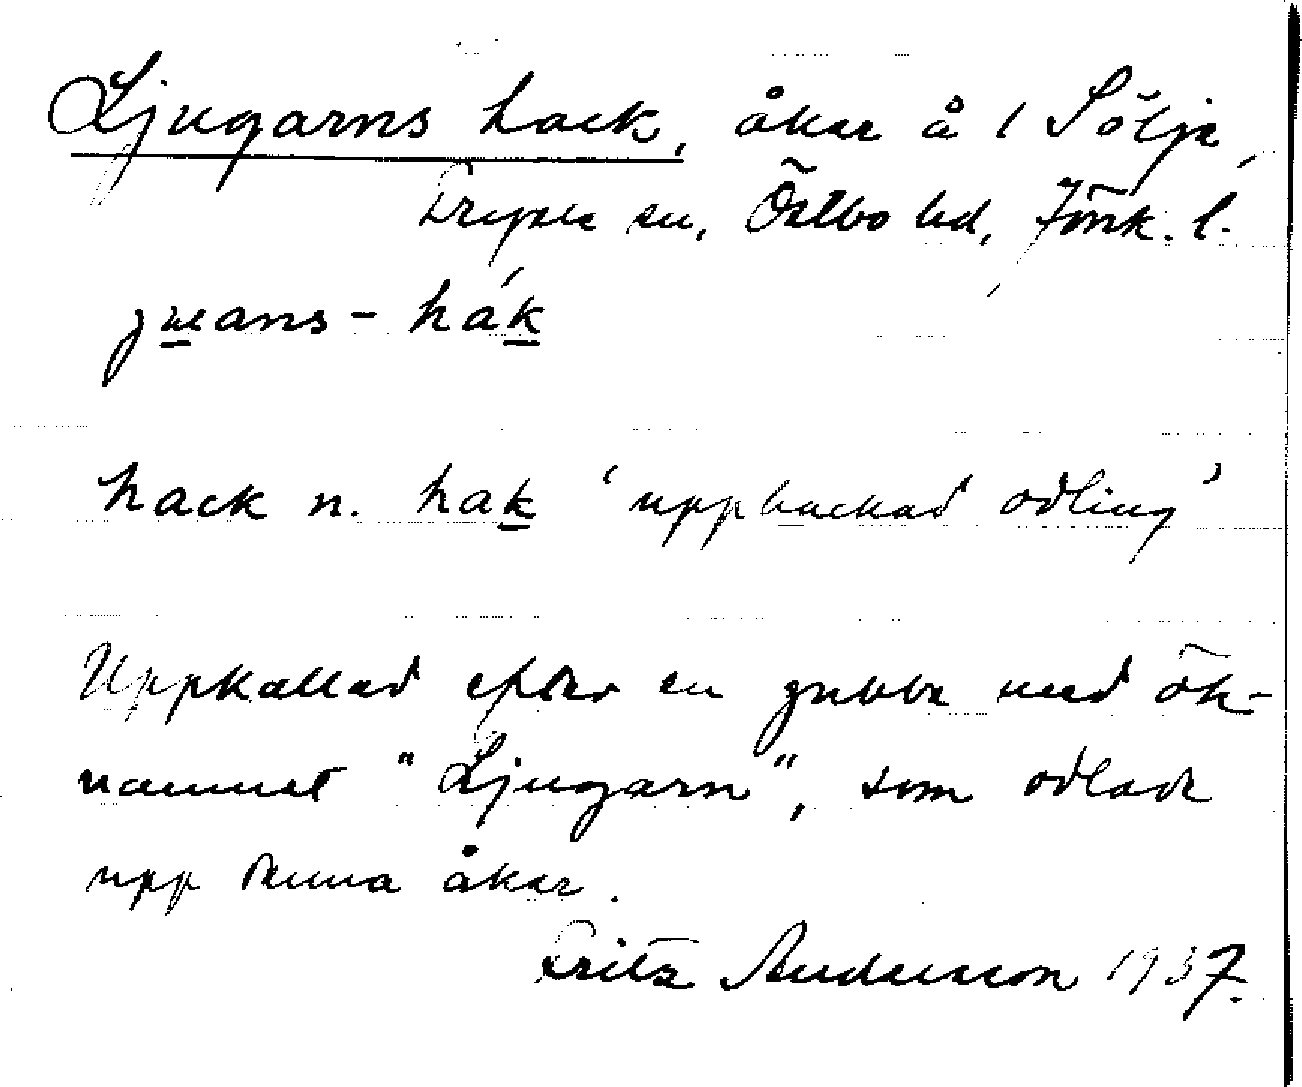 Ljugarns hack, åker å 1 Sölje,
Fryele sn, Östbo hd, Jönk. l.
hák
hack n. hak 'upphackad odling'
Uppkallad efter en gubbe med ök-
namnet "Ljugarn", som odlade
upp denna åker.
Fritz Andersson 1937.